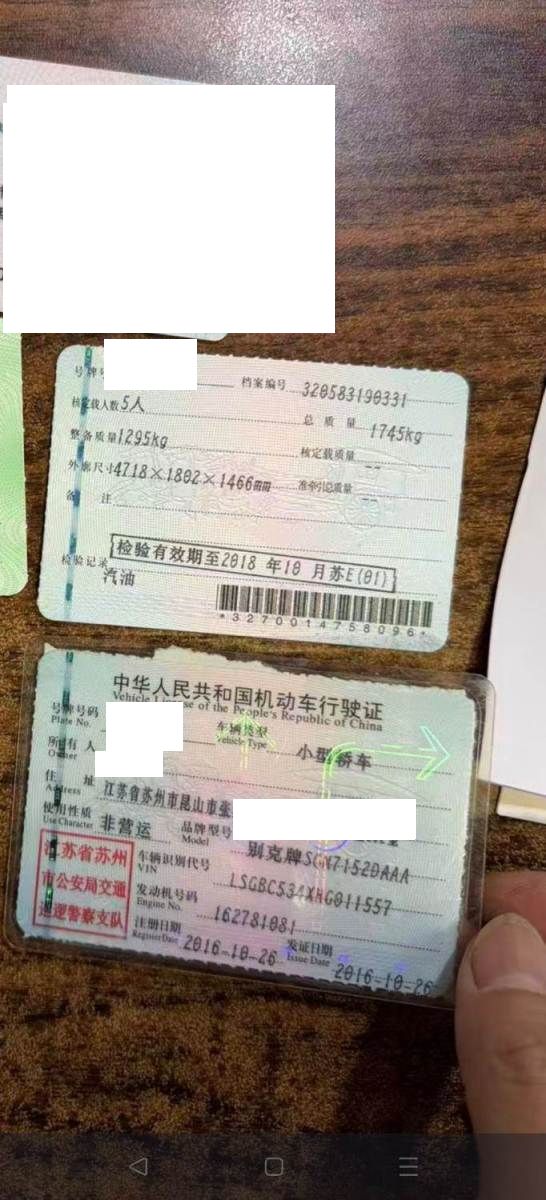 号牌号
档案编号 320583190331
核定载人数 5人
总质量 1745kg
整备质量 1295kg
核定载质量 --
外廓尺寸 4718×1802×1466mm
准牵引总质量 --
备注
检验记录 检验有效期至2018年10月苏E(01)
汽油
*3270014758096*
中华人民共和国机动车行驶证
Vehicle License of the People's Republic of China
号牌号码
Plate No.
车辆类型 小型轿车
Vehicle Type
所有人
Owner
住址 江苏省苏州市昆山市张
Address
使用性质 非营运
Use Character
品牌型号 别克牌SGM7152DAAA
Model
江苏省苏州
市公安局交通
巡逻警察支队
车辆识别代号 LSGBC534XHG011557
VIN
发动机号码 162781081
Engine No.
注册日期 2016-10-26
Register Date
发证日期 2016-10-26
Issue Date